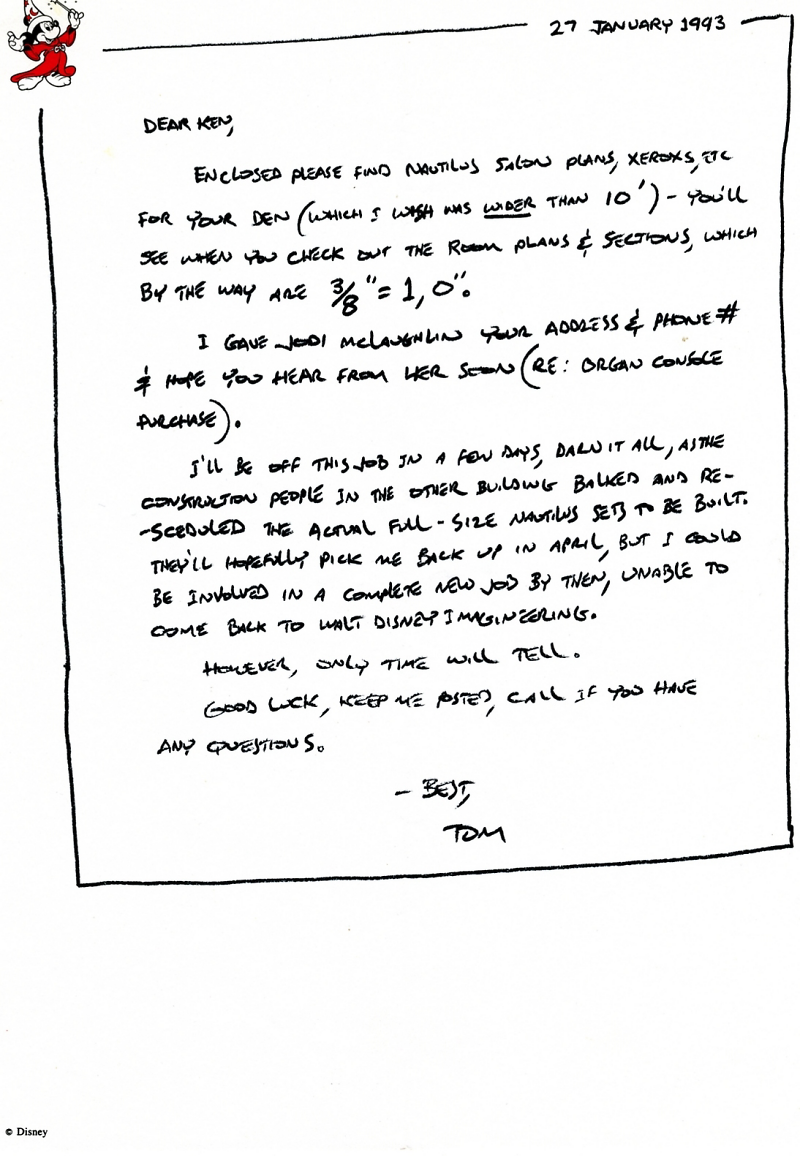 27 JANUARY 1993
DEAR KEN,
ENCLOSED PLEASE FIND NAUTILUS SALON PLANS, XEROXS, ETC
FOR YOUR DEN (WHICH I WISH WAS WIDER THAN 10') - YOU'LL
SEE WHEN YOU CHECK OUT THE ROOM PLANS & SECTIONS, WHICH
BY THE WAY ARE 3/8" = 1, 0".
I GAVE JODI MCLAUGHLIN YOUR ADDRESS & PHONE #
& HOPE YOU HEAR FROM HER SOON (RE: ORGAN CONSOLE
PURCHASE).
I'LL BE OFF THIS JOB IN A FEW DAYS, DARN IT ALL, AS THE
CONSTRUCTION PEOPLE IN THE OTHER BUILDING BALKED AND RE-
-SCEDULED THE ACTUAL FULL-SIZE NAUTILUS SETS TO BE BUILT.
THEY'LL HOPEFULLY PICK ME BACK UP IN APRIL, BUT I COULD
BE INVOLVED IN A COMPLETE NEW JOB BY THEN, UNABLE TO
COME BACK TO WALT DISNEY IMAGINEERING.
HOWEVER, ONLY TIME WILL TELL.
GOOD LUCK, KEEP ME POSTED, CALL IF YOU HAVE
ANY QUESTIONS.
- BEST,
TOM
© Disney